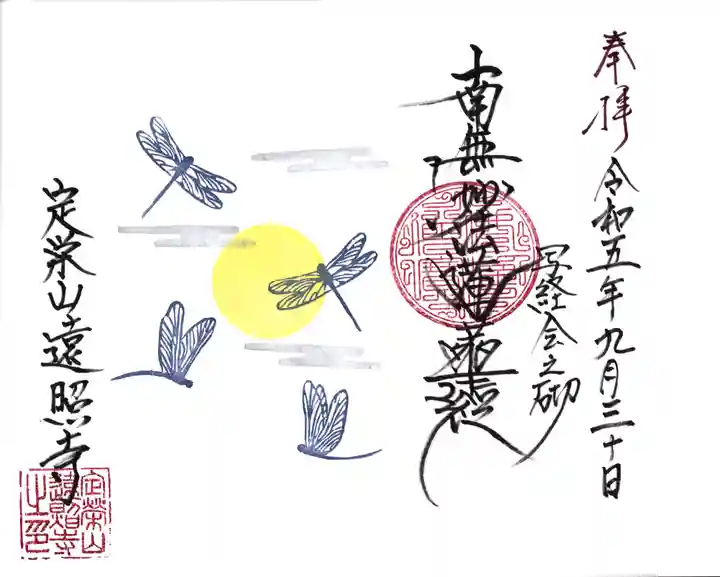 奉拝
令和五年九月三十日
写経会之砌
南無妙法蓮華経
定栄山遠照寺
定榮山
遠照寺
之印